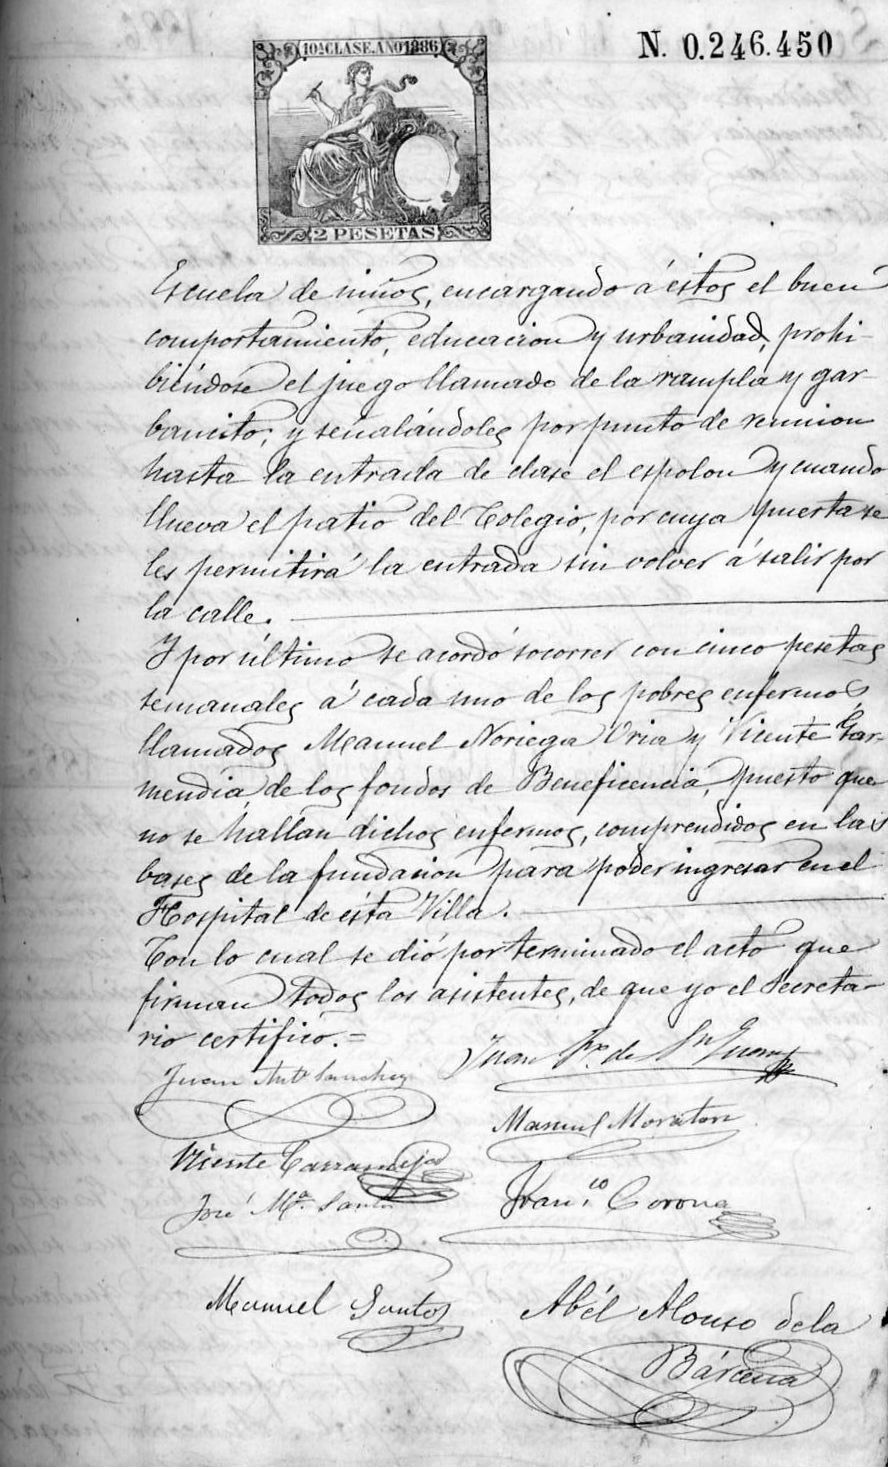 10ª CLASE. AÑO 1886
N. 0.246.450
2 PESETAS
Escuela de niños, encargando á éstos el buen
comportamiento, educacion y urbanidad, prohi-
biéndose el juego llamado de la rampla y gar-
bancito, y señalándoles por punto de reunion
hasta la entrada de clase el espolon y cuando
llueva el patio del Colegio, por cuya puerta se
les permitirá la entrada sin volver á salir por
la calle.
Y por último se acordó socorrer con cinco pesetas
semanales á cada uno de los pobres enfermos
llamados Manuel Noriega Oria y Vicente Gar-
mendia de los fondos de Beneficencia, puesto que
no se hallan dichos enfermos, comprendidos en las
bases de la fundacion para poder ingresar en el
Hospital de ésta Villa.
Con lo cual se dió por terminado el acto que
firman todos los asistentes, de que yo el Secreta-
rio certifico.=
Juan Antº Sanchez
Juan de
Manuel Moraton
Vicente
José Mª Santos
Franco Corona
Manuel Santos
Abél Alonso de la
Bárcena